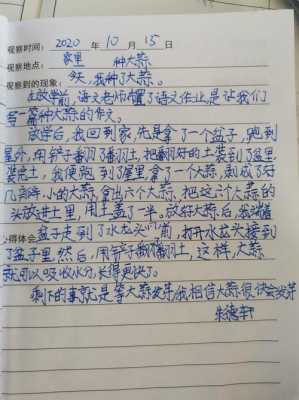 观察时间: 2020 年 10 月 15 日
观察地点: 家里 种大蒜
观察到的现象: 今天,我种了大蒜。
在放学前,语文老师布置了语文作业,是让我们
写一篇种大蒜的作文。
放学后,我回到家,先是拿了一个盆子,跑到
室外,用铲子翻了翻土,把翻好的土装到了盆里
装完土,我便跑到了屋里拿了一个大蒜,剥成了好
几个小的大蒜,拿出六个大蒜,把这六个大蒜的
头放进土里,用土盖了一半。放好大蒜后,我端着
心得体会 盆子走到了水龙头们前,打开水龙头接到
了盆子里,然后,用铲子翻翻土,这样,大蒜
就可以吸收水分,长得更快了。
剩下的事就是等大蒜发芽,我相信大蒜很快会发芽
朱德轩